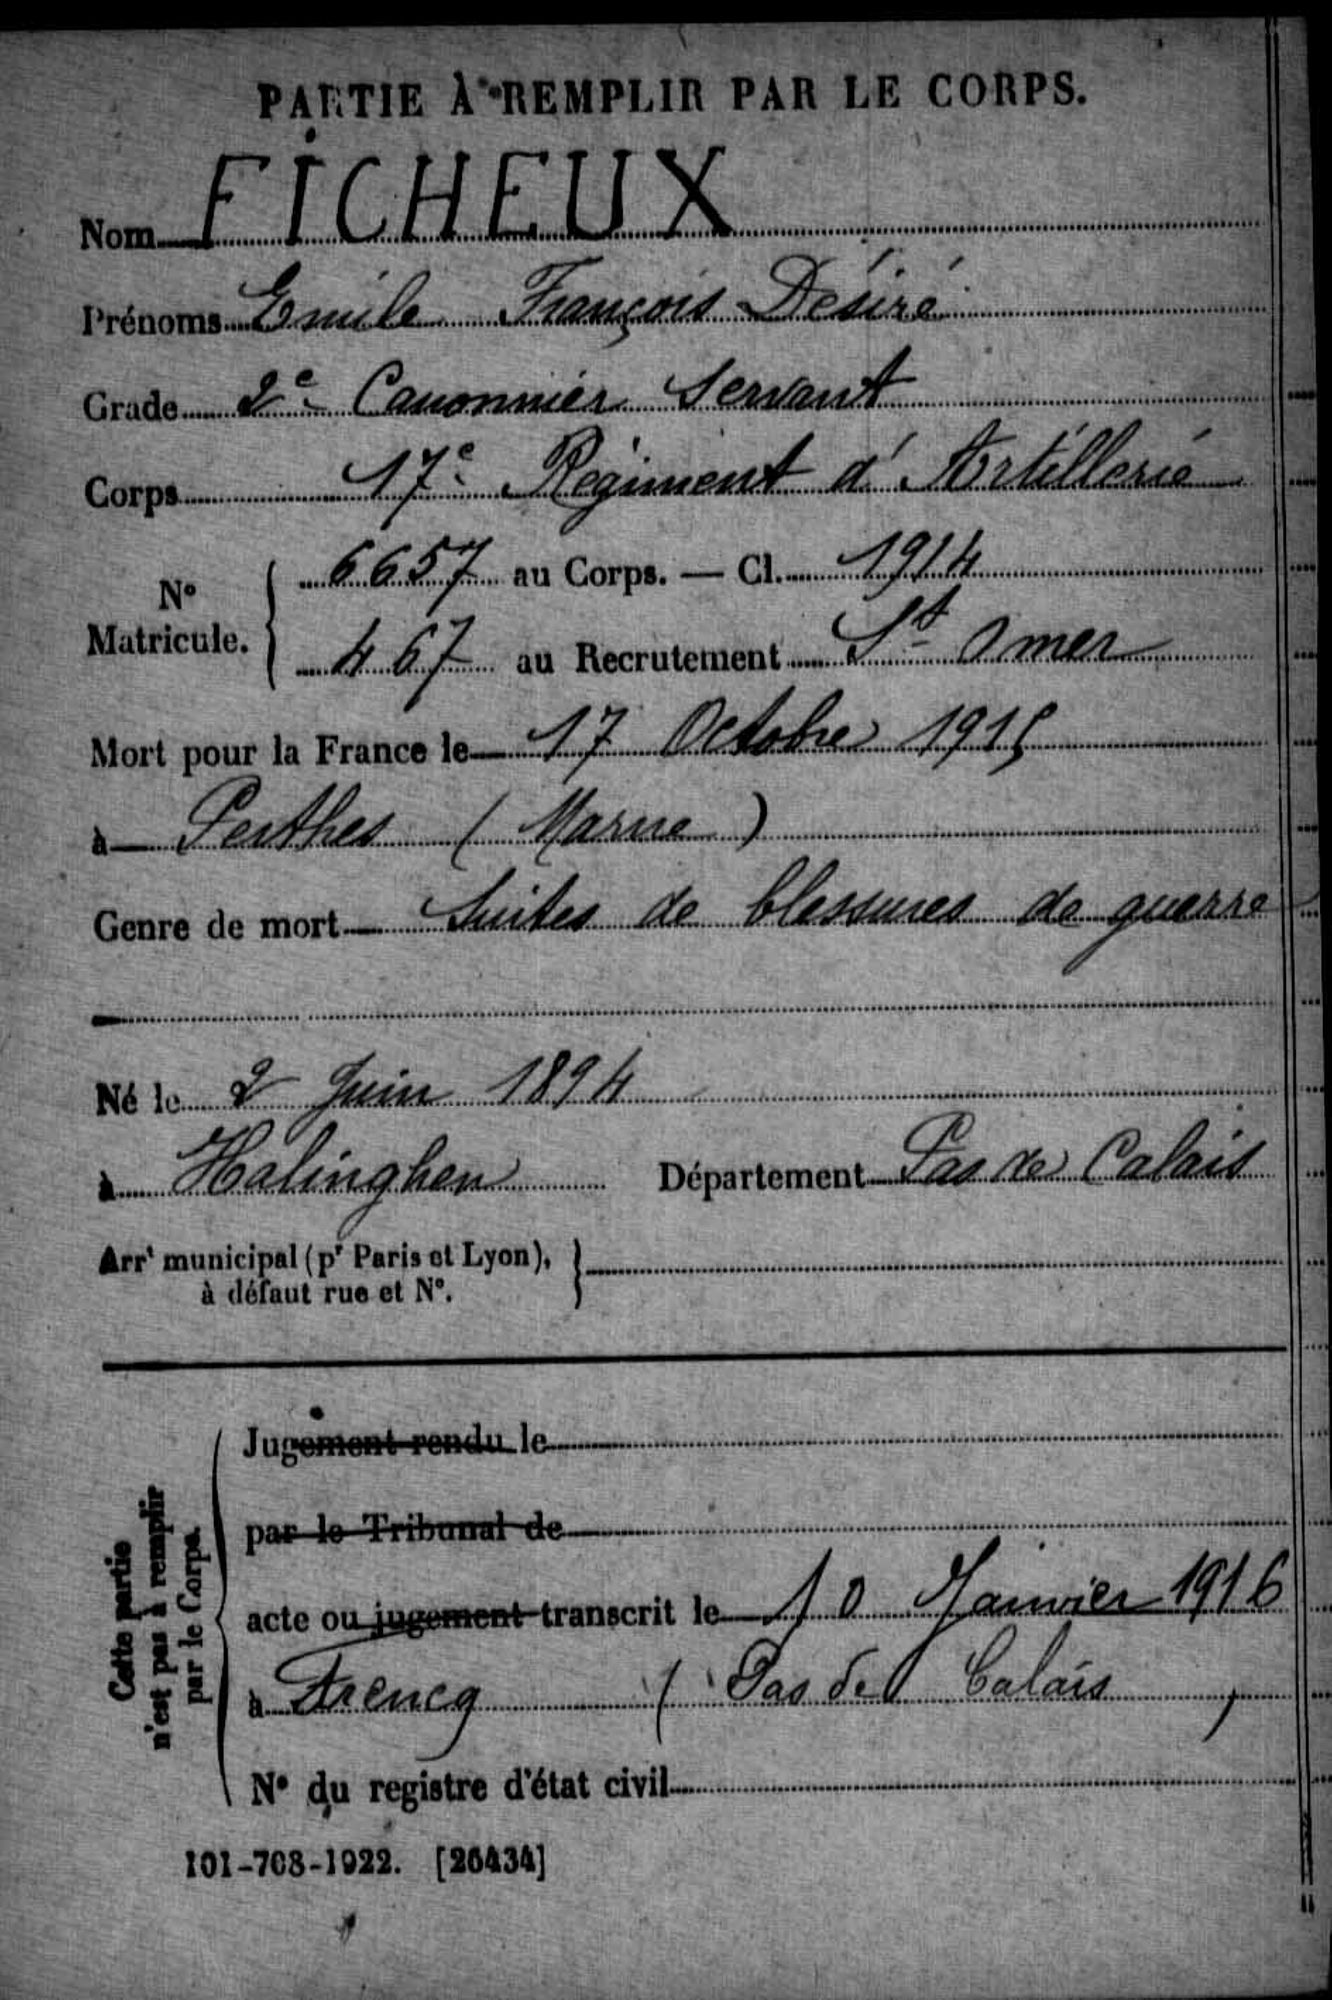 PARTIE À REMPLIR PAR LE CORPS.
Nom FICHEUX
Prénoms Emile François Désiré
Grade 2e Canonnier Servant
Corps 17e Régiment d'Artillerie
No Matricule. 6657 au Corps. — Cl. 1914
467 au Recrutement St Omer
Mort pour la France le 17 Octobre 1915
à Perthes (Marne)
Genre de mort Suites de blessures de guerre
Né le 2 Juin 1894
à Halinghen Département Pas de Calais
Arrt municipal (pr Paris et Lyon),
à défaut rue et No.
Cette partie
n'est pas à remplir
par le Corps.
Jugement rendu le
par le Tribunal de
acte ou jugement transcrit le 10 Janvier 1916
à Frencq (Pas de Calais)
No du registre d'état civil
101-708-1922. [26434]